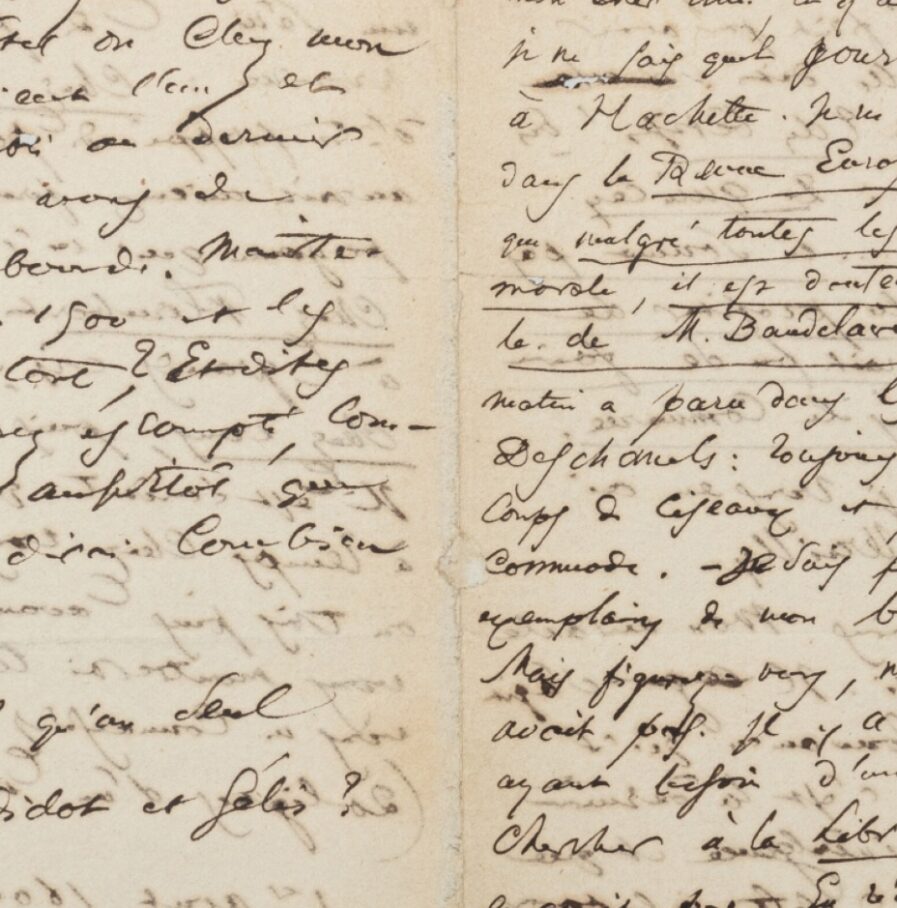 on Chez mon
l'un et
au dernier
avons de
Mainte-
1500 et les
tort ? Et dites
escompté, Com-
aussitôt que
Combien
qu'un seul
Didot et Gélis ?
je ne sais quel jour
à Hachette. Je me
dans la Revue Euro
que malgré toutes les
morale, il est doute
le. de M. Baudelaire
matin a paru dans l
Deschanels : toujours
coups de ciseaux et
commode. - Je sais
exemplaires de mon b
Mais figurez-vous,
avait pas. Il y a
ayant besoin d'un
chercher à la Libr